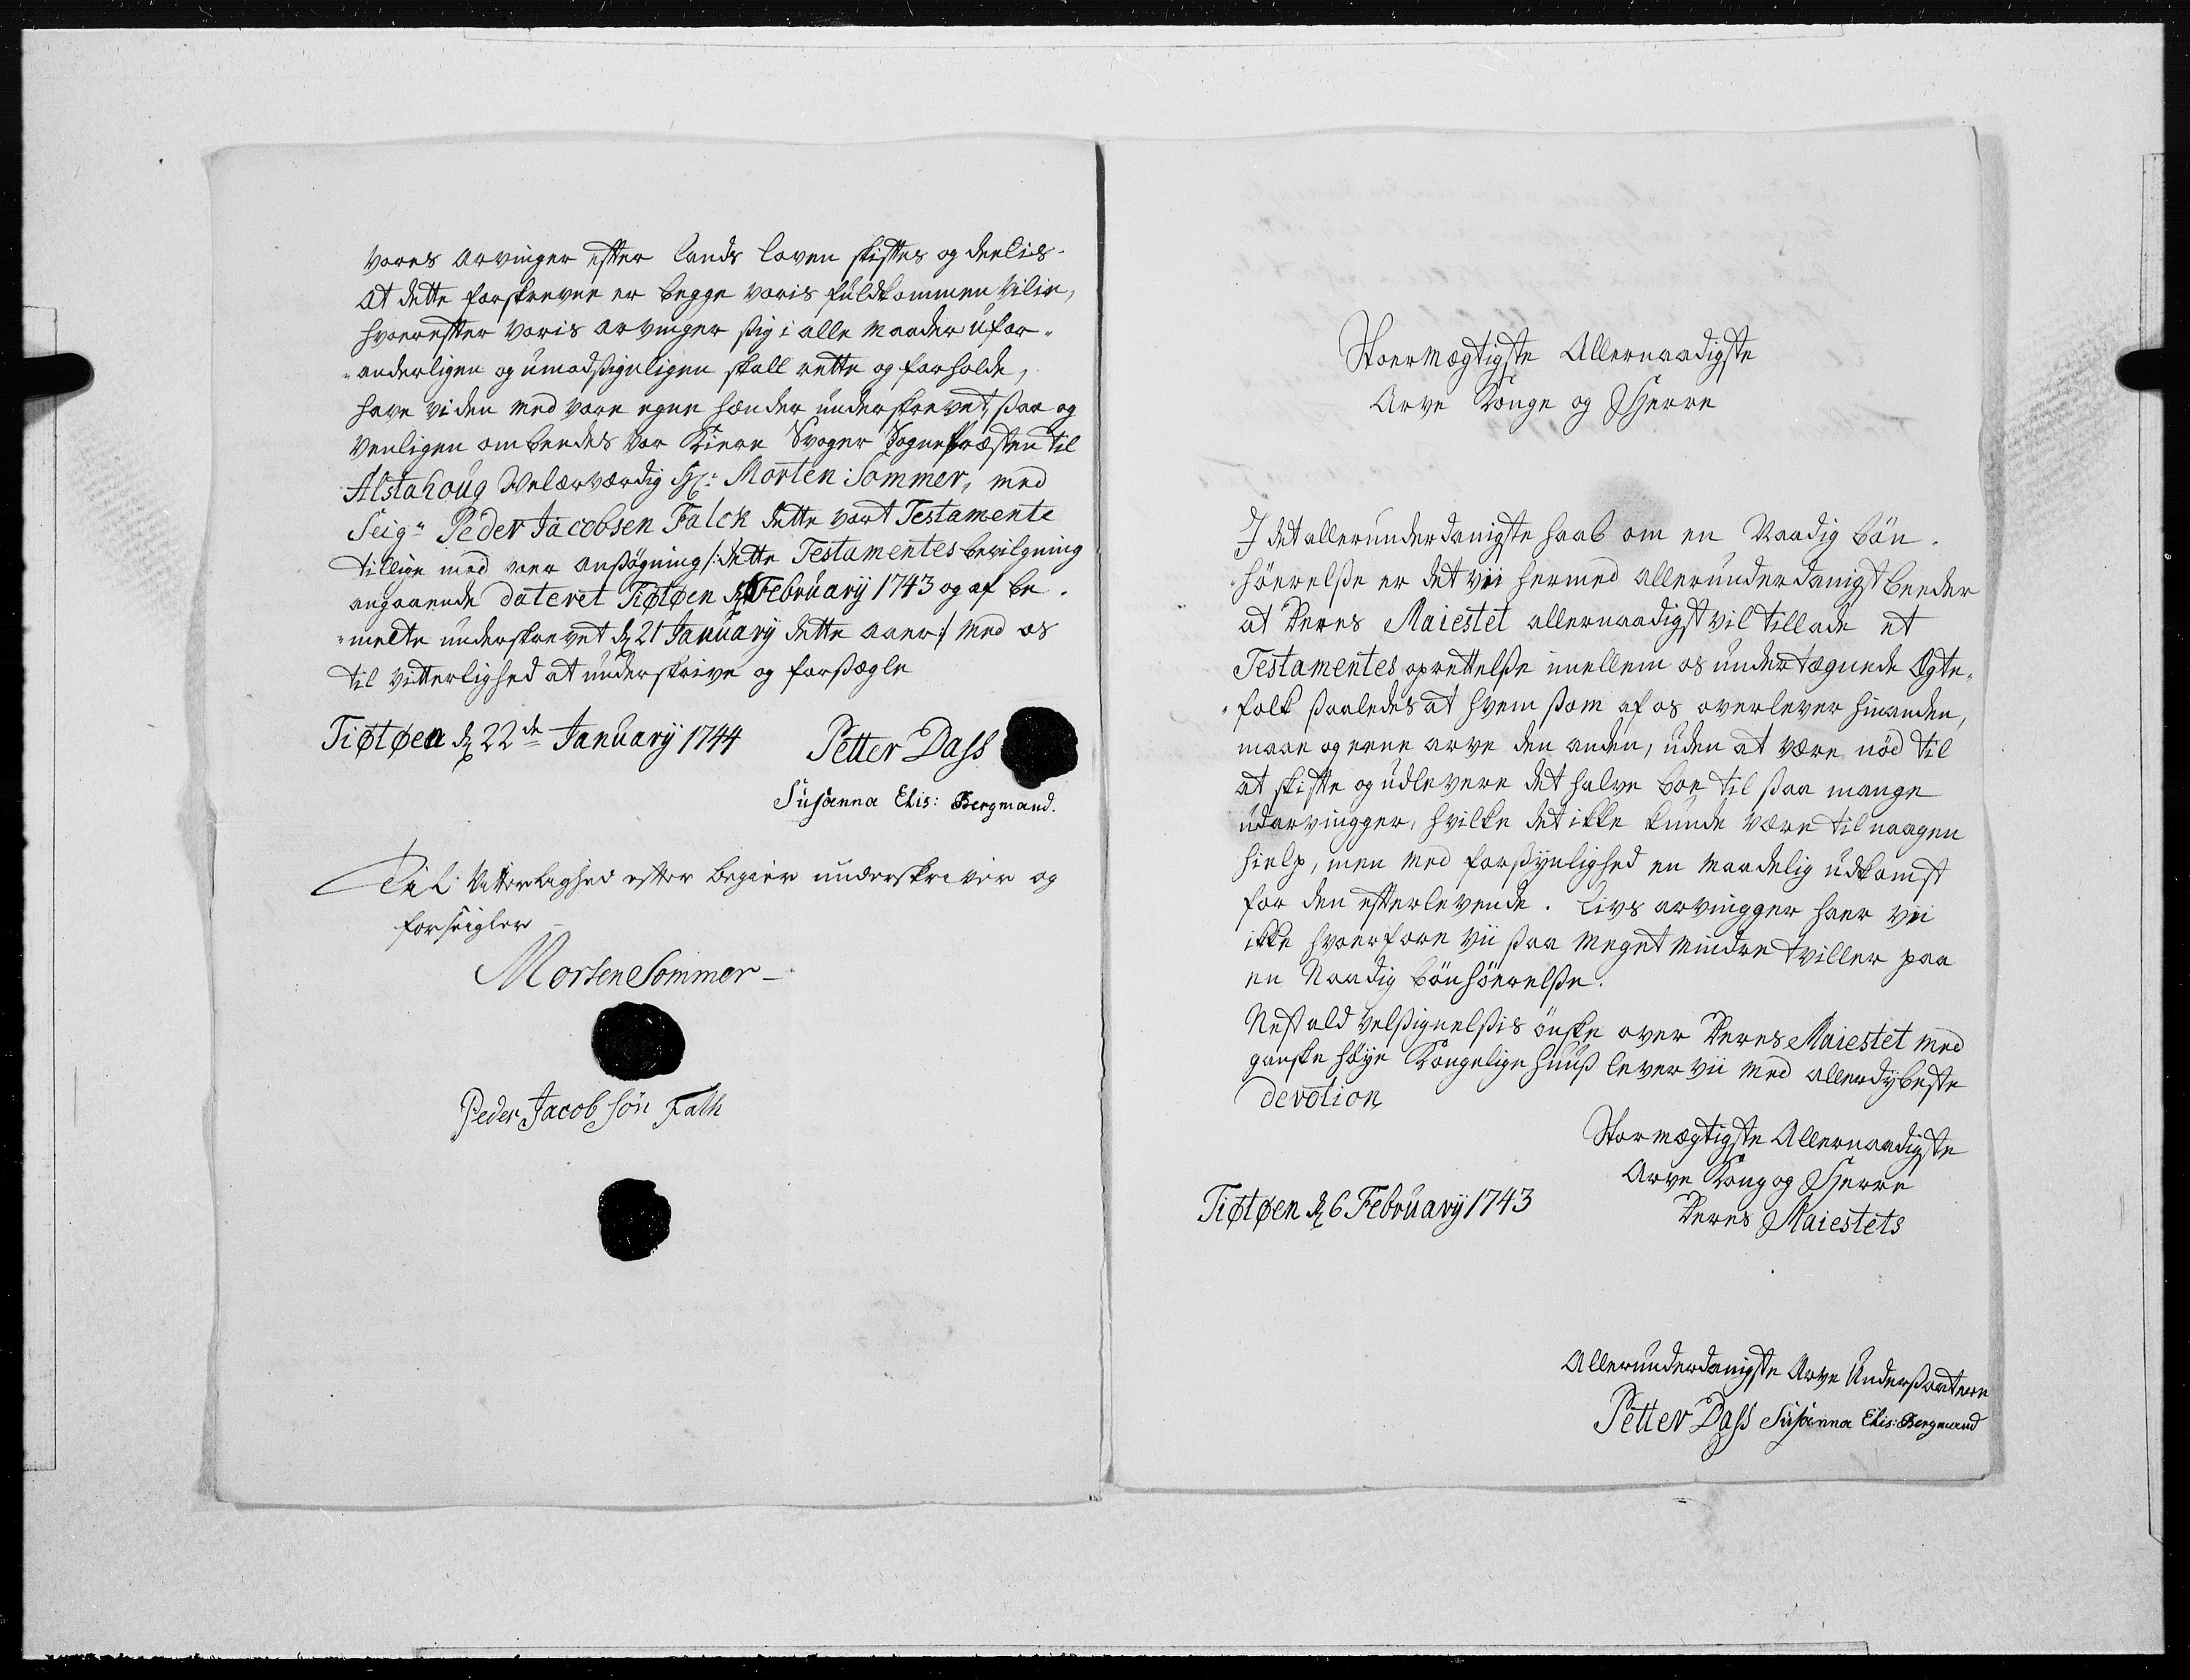 vores arvinger efter lands loven skiftes og deelis.
At dette forskrevne er begge voris fuldkommen Vilie,
hvorefter voris arvinger sig i alle maader ufor-
-anderligen og umodsigeligen skall rette og forholde,
have vi den med vore egne hænder underskrevet, saa og
venligen ombedes vor Kiere Svoger Sognepræsten til
Alstahoug Velærværdig Hr: Morten Sommer, med
Seigr Peder Jacobsen Falck dette vort Testamente
tillige med voer ansøgning /: dette Testamentes bevilgning
angaaende dateret Tiøtøen d 6 February 1743 og af be-
-melte underskrevet d 21 January dette aaer :/ med os
til vitterlighed at underskrive og forsægle
Tiøtøen d 22de January 1744
Petter Dass
Susanna Elis: Bergmand.
Til Vitterlighed efter begier underskriver og
forseigler
Morten Sommer
Peder Jacobsøn Falk
Stoermægtigste Allernaadigste
Arve Konge og Herre
I det allerunderdanigste haab om en Naadig bøn-
-høerelse er det vii hermed allerunderdanigst beeder
at Deres Maiestet allernaadigst vil tillade et
Testamentes oprettelse imellem os undertegnede Egte-
-folk saaledes at hvem som af os overlever hinanden,
maae og eene arve den anden, uden at være nød til
at skifte og udlevere det halve boe til saa mange
udarvingger, hvilke det ikke kunde være til naagen
hielp, men med forsynlighed en maadelig udkomst
for den efterlevende. Livs arvingger haer vii
ikke hvoerfore vii saa meget mindre tviller paa
en Naadig bønhøerelse.
Nest ald velsignelsis ønske over Deres Maiestet med
ganske høye Kongelige huus lever vii med allerdybeste
devotion
Stormægtigste Allernaadigste
Arve Kong og Herre
Deres Maiestets
Tiøtøen d 6 February 1743
Allerunderdanigste Arve Undersaattere
Petter Dass Susanna Elis: Bergmand